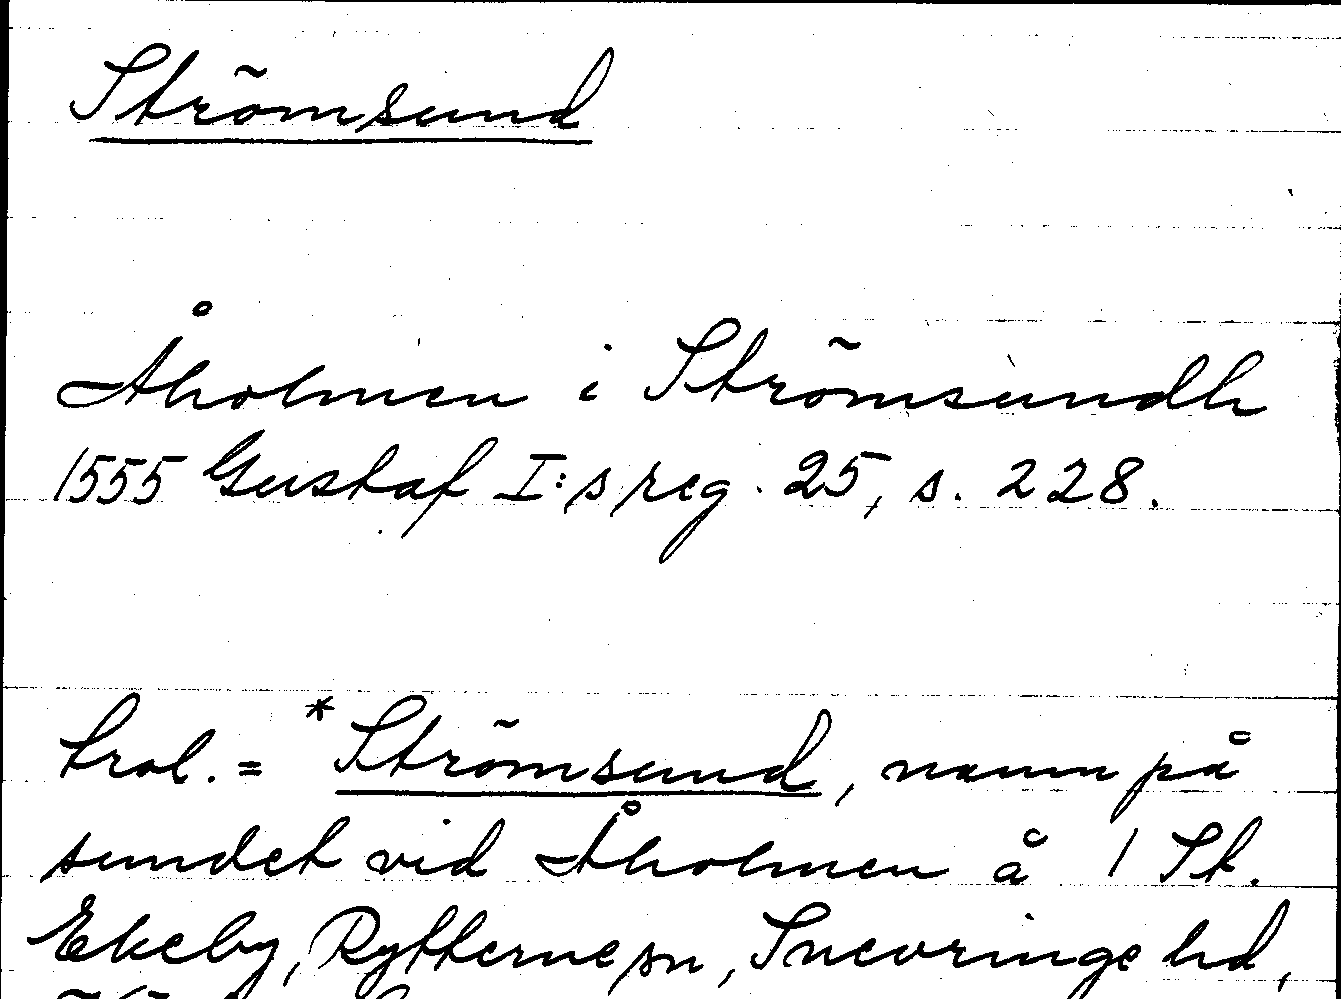 Strömsund
Åholmen i Strömsundh
1555 Gustaf I:s reg. 25, s. 228.
trol. = *Strömsund, namn på
sundet vid Åholmen å 1 St.
Ekeby, Rytterne sn, Snevringe hd,